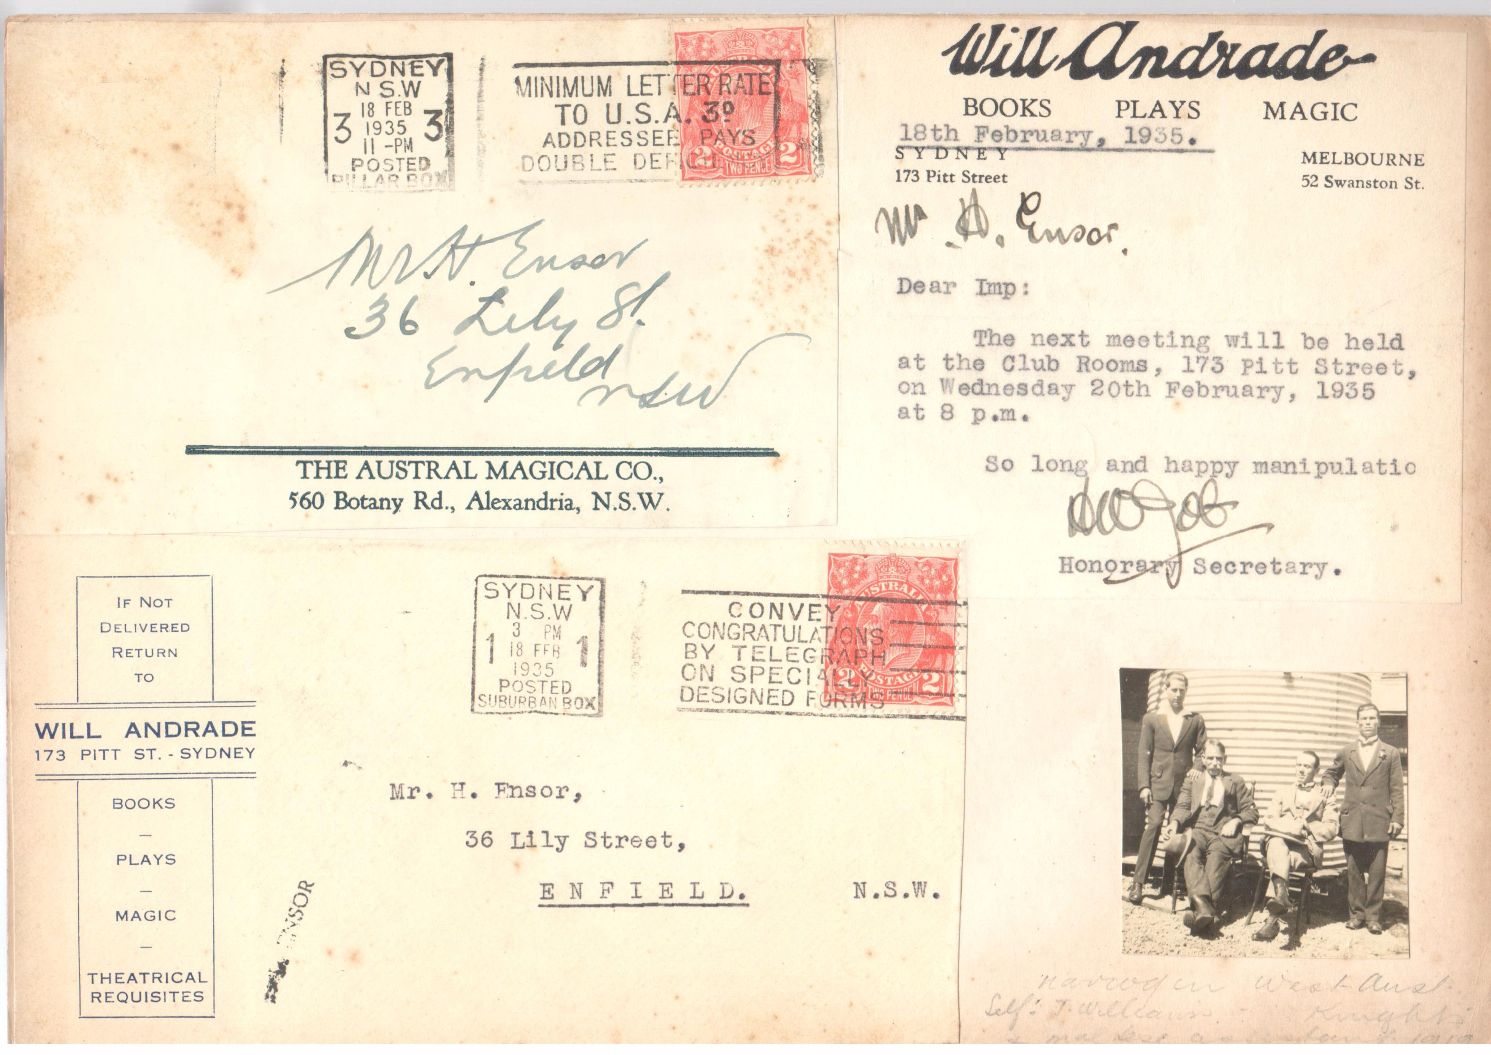 SYDNEY
N S.W
18 FEB
3 1935 3
11-PM
POSTED
PILLAR BOX
MINIMUM LETTER RATE
TO U.S.A. 3D
ADDRESSEE PAYS
DOUBLE DEFICI
POSTAGE
2 TWO PENCE 2
Mr H. Ensor
36 Lily St.
Enfield
NSW
THE AUSTRAL MAGICAL CO.,
560 Botany Rd., Alexandria, N.S.W.
Will Andrade
BOOKS PLAYS MAGIC
18th February, 1935.
SYDNEY MELBOURNE
173 Pitt Street 52 Swanston St.
Mr. H. Ensor.
Dear Imp:
The next meeting will be held
at the Club Rooms, 173 Pitt Street,
on Wednesday 20th February, 1935
at 8 p.m.
So long and happy manipulatio
Honorary Secretary.
IF NOT
DELIVERED
RETURN
TO
WILL ANDRADE
173 PITT ST. - SYDNEY
BOOKS
—
PLAYS
—
MAGIC
—
THEATRICAL
REQUISITES
SYDNEY
N.S.W
3 PM
1 18 FEB 1
1935
POSTED
SUBURBAN BOX
CONVEY
CONGRATULATIONS
BY TELEGRAPH
ON SPECIALLY
DESIGNED FORMS
AUSTRALIA
2 POSTAGE 2
Mr. H. Ensor,
36 Lily Street,
ENFIELD. N.S.W.
ENSOR
narrogin West Aust.
Self: J. Williams. Knights